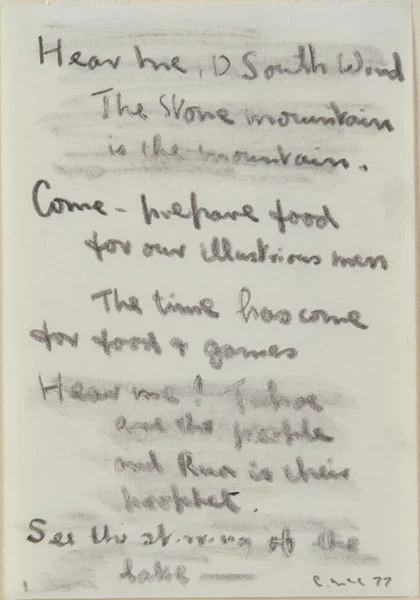 Hear me, O South Wind
The Stone mountain
is the mountain.
Come - prepare food
for our illustrious men
The time has come
for food & games
Hear me! Tuhoe
are the people
and Rua is their
prophet.
See the stirring of the
lake —
1 C. McC 77